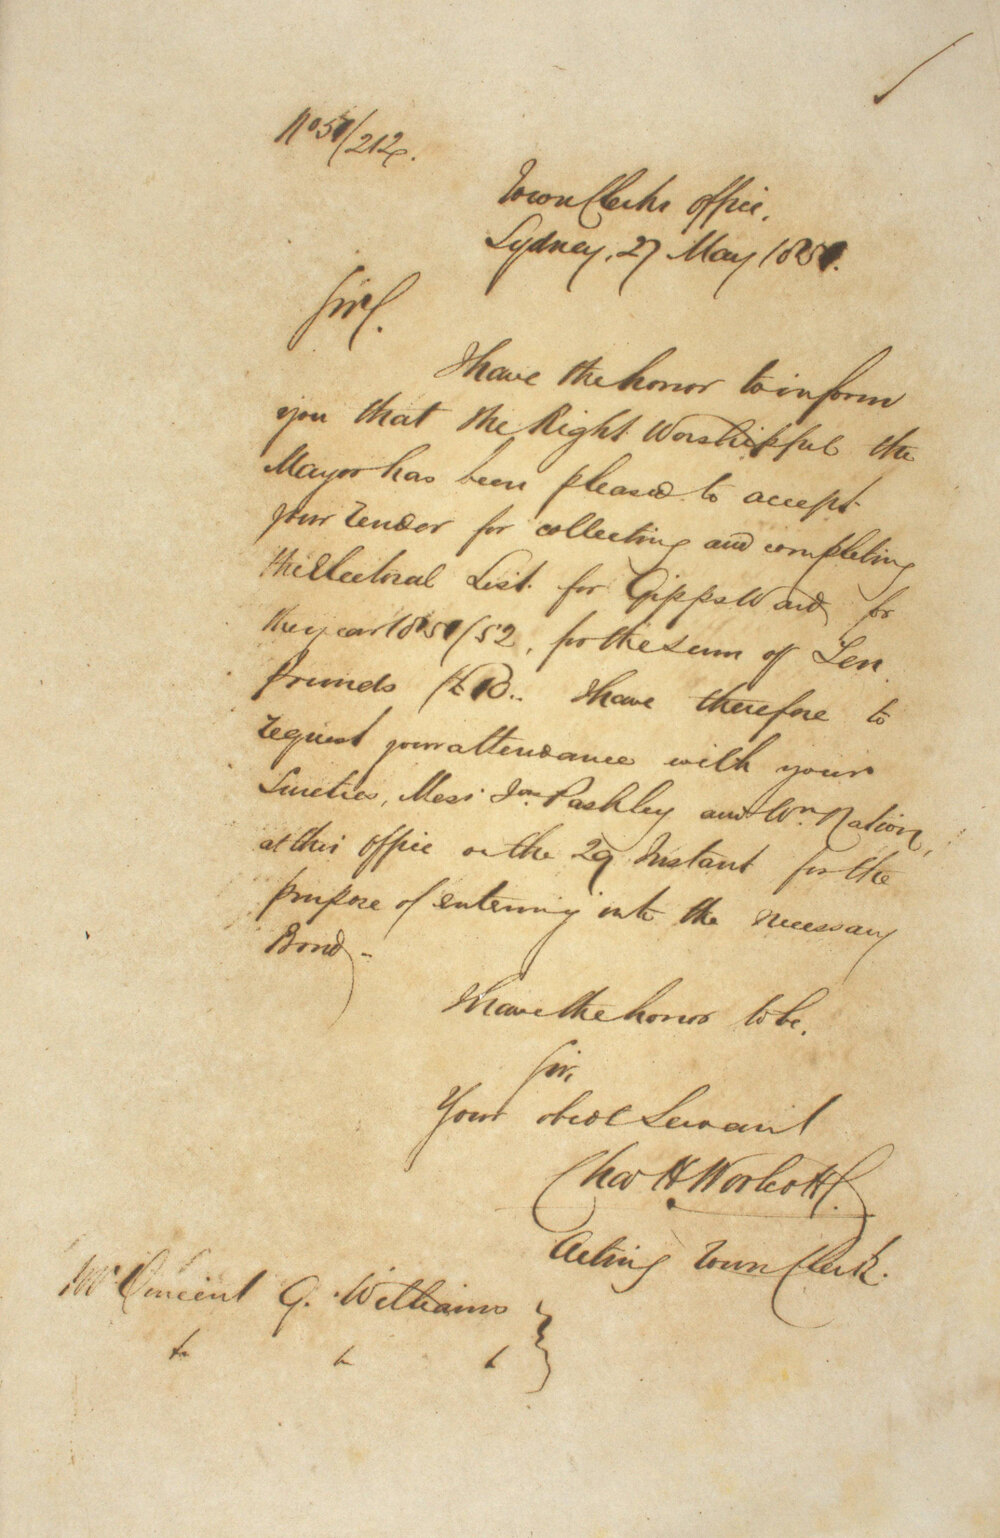 No 51/212.
Town Clerks office.
Sydney, 27 May 1851.
Sir,
I have the honor to inform
you that the Right Worshipful the
Mayor has been pleased to accept
your Tender for collecting and completing
the Electoral List for Gipps Ward for
the year 1851/52, for the sum of Ten
Pounds £10.. I have therefore to
request your attendance with your
Sureties, Messs Jno Pashley and Wm Nation,
at this office on the 29 Instant for the
purpose of entering into the necessary
Bond -
I have the honor to be,
Sir,
Your obedt Servant
Chas H Woolcott.
Acting Town Clerk.
Mr Vincent G. Williams